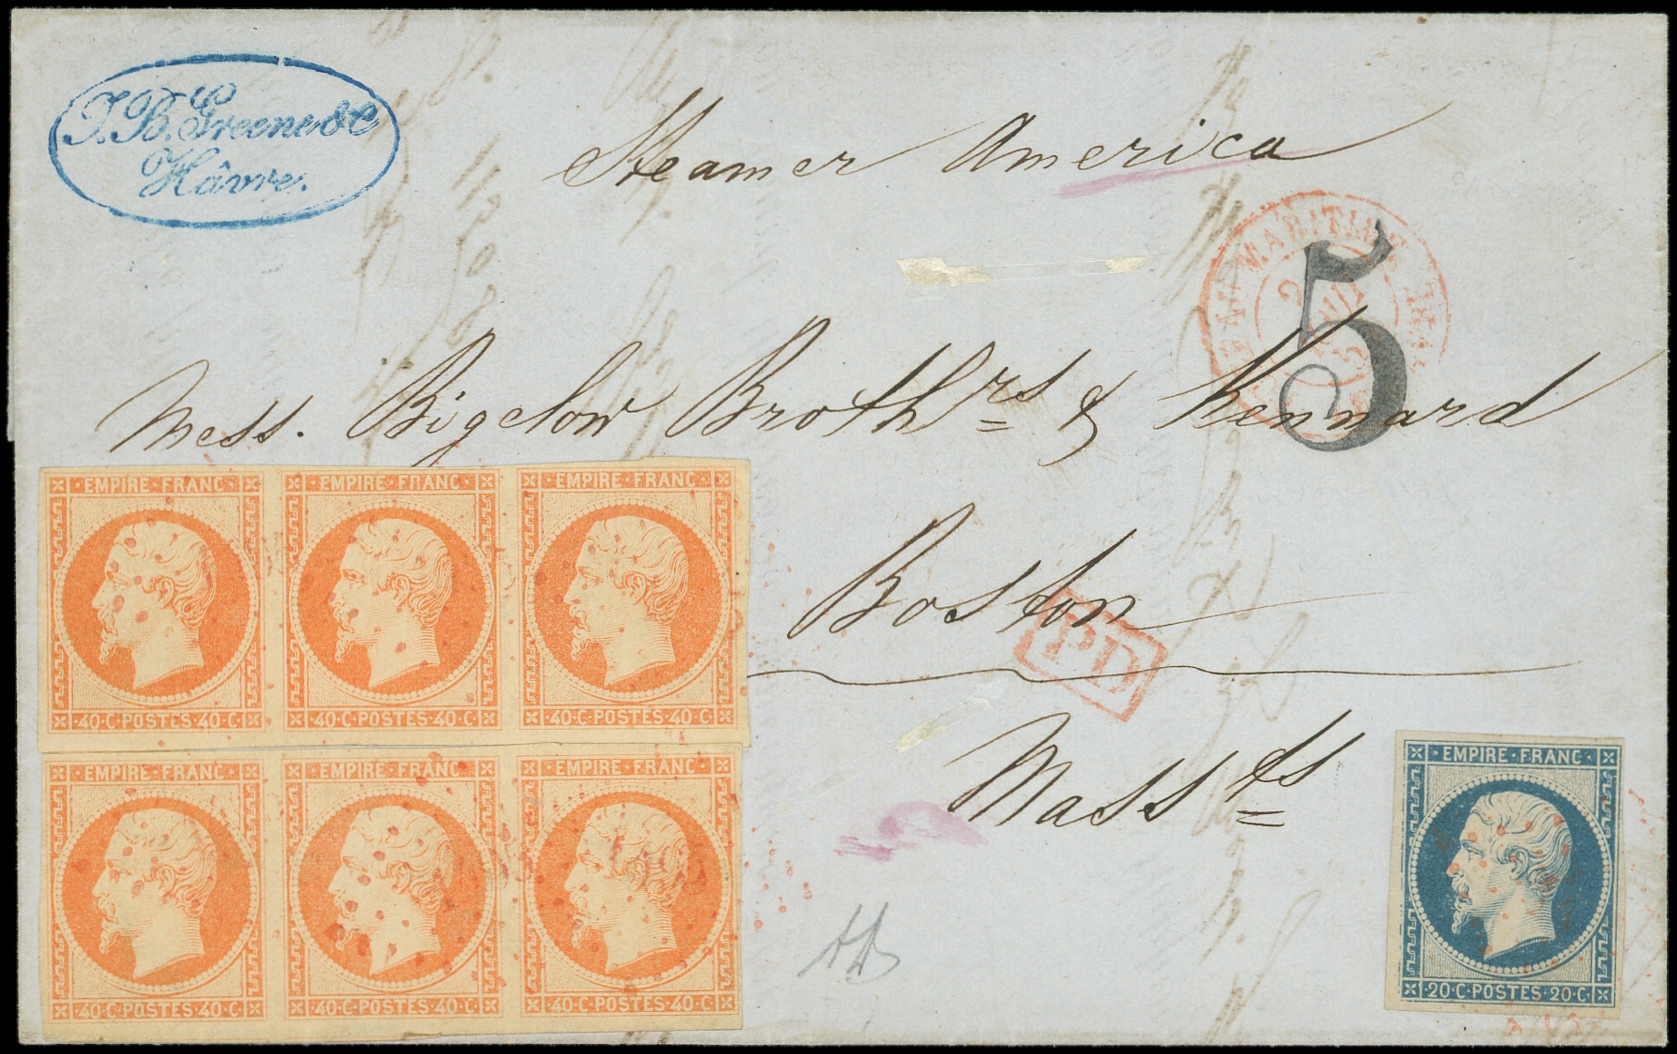 J. B. Greene & C
Hâvre.
Steamer America
MARITIME
5
Mess. Bigelow Broth.rs & Kennard
Boston
PD
Massts
EMPIRE · FRANC · EMPIRE · FRANC · EMPIRE · FRANC ·
40·C·POSTES·40·C· 40·C·POSTES·40·C· 40·C·POSTES·40·C·
EMPIRE · FRANC · EMPIRE · FRANC · EMPIRE · FRANC ·
40·C·POSTES·40·C· 40·C·POSTES·40·C· 40·C·POSTES·40·C·
EMPIRE · FRANC ·
20·C·POSTES·20·C·